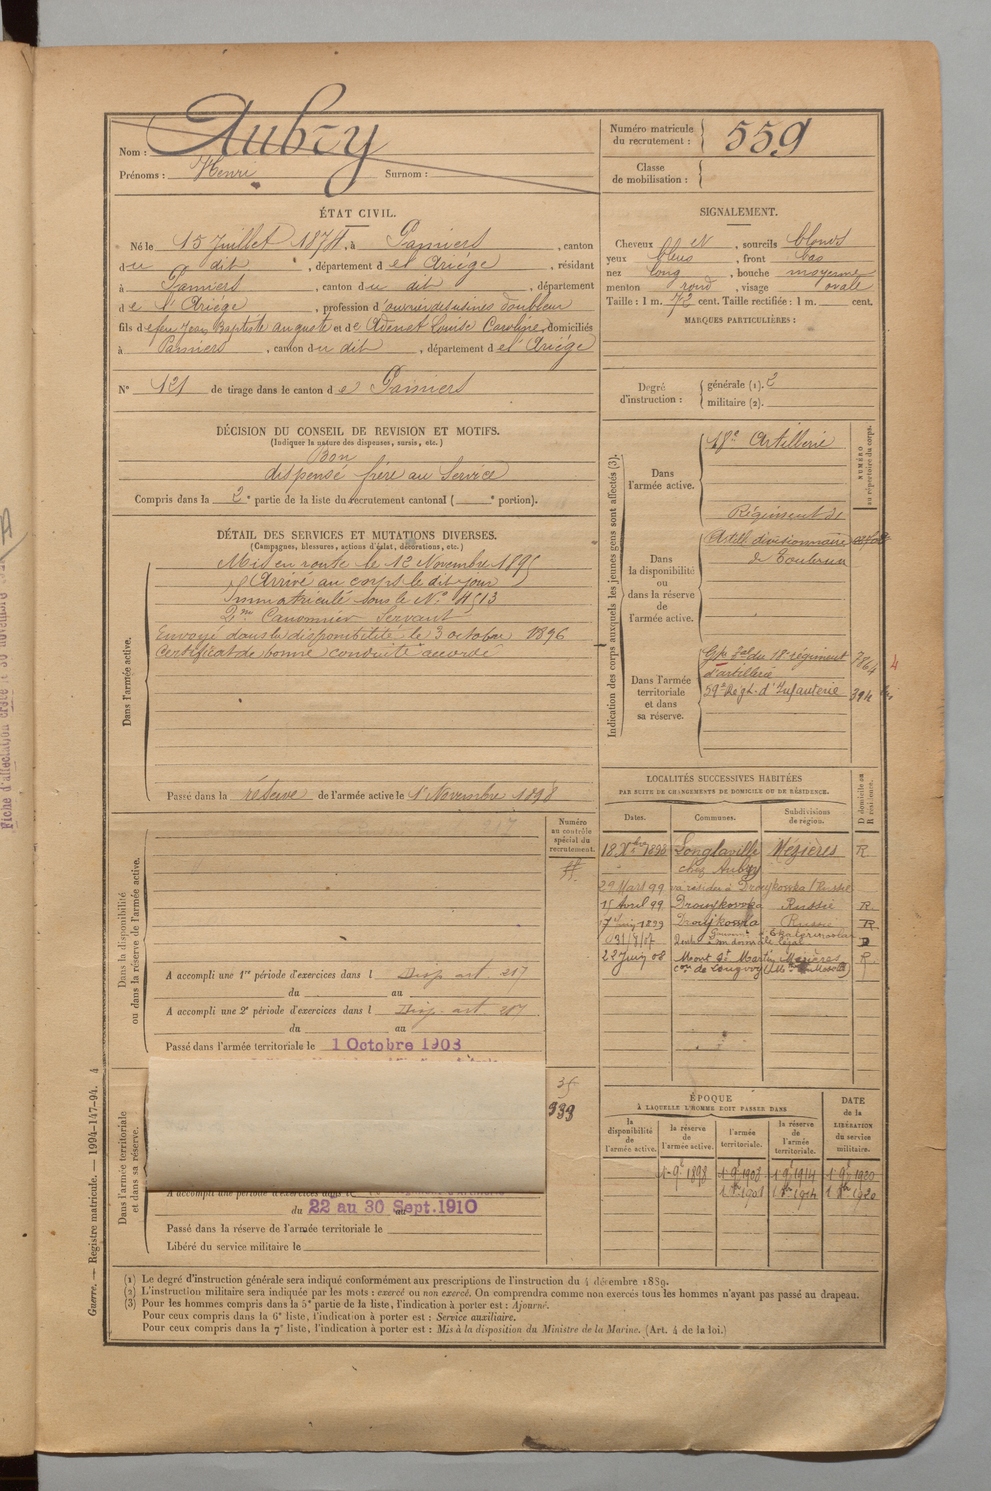 Nom : Aubry
Prénoms : Henri Surnom :
Numéro matricule du recrutement : 559
Classe de mobilisation :
ÉTAT CIVIL.
Né le 15 Juillet 1874, à Pamiers, canton
du dit, département de l'Ariège, résidant
à Pamiers, canton du dit, département
de l'Ariège, profession d'ouvrier des usines doubleur
fils de feu Jean Baptiste Auguste et de Adenet Louise Caroline, domiciliés
à Pamiers, canton du dit, département de l'Ariège
N° 121 de tirage dans le canton de Pamiers
SIGNALEMENT.
Cheveux et, sourcils blonds
yeux bleus, front bas
nez long, bouche moyenne
menton rond, visage ovale
Taille : 1 m. 72 cent. Taille rectifiée : 1 m. cent.
MARQUES PARTICULIÈRES :
Degré d'instruction :
générale (1). 2
militaire (2).
DÉCISION DU CONSEIL DE REVISION ET MOTIFS.
(Indiquer la nature des dispenses, sursis, etc.)
Bon
dispensé frère au Service
Compris dans la 2e partie de la liste du recrutement cantonal ( e portion).
DÉTAIL DES SERVICES ET MUTATIONS DIVERSES.
(Campagnes, blessures, actions d'éclat, décorations, etc.)
Dans l'armée active.
Mis en route le 12 Novembre 1895
Arrivé au corps le dit jour
Immatriculé sous le N° 4513
2me Canonnier Servant
Envoyé dans la disponibilité le 3 octobre 1896
Certificat de bonne conduite accordé
Passé dans la réserve de l'armée active le 1 Novembre 1898
Indication des corps auxquels les jeunes gens sont affectés (3).
NUMÉRO au répertoire du corps.
Dans l'armée active.
18e Artillerie
Dans la disponibilité ou dans la réserve de l'armée active.
Régiment de
Artill. divisionnaire
de Toulouse
Dans l'armée territoriale et dans sa réserve.
Gpe Tal du 18e régiment 7864 4
d'artillerie
59e Regt. d'Infanterie 394
LOCALITÉS SUCCESSIVES HABITÉES
PAR SUITE DE CHANGEMENTS DE DOMICILE OU DE RÉSIDENCE.
Dates. Communes. Subdivisions de région. D domicile ou R résidence.
18 Xbre 1898 Longlaville Mézières R
chez Aubry
29 Mars 99 va résider à Droujkowka (Russie)
15 Avril 99 Droujkovka Russie R
7 Juin 1899 Droujkowka Russie R
31/7/07
22 Juin 08 Mont St Martin Mézières R
con de Longwy
Dans la disponibilité ou dans la réserve de l'armée active.
Numéro au contrôle spécial du recrutement.
A accompli une 1re période d'exercices dans l Disp. art 217
du au
A accompli une 2e période d'exercices dans l Disp. art 217
du au
Passé dans l'armée territoriale le 1 Octobre 1903
Dans l'armée territoriale et dans sa réserve.
35
933
A accompli une période d'exercices dans le
du 22 au 30 Sept. 1910
Passé dans la réserve de l'armée territoriale le
Libéré du service militaire le
ÉPOQUE
À LAQUELLE L'HOMME DOIT PASSER DANS
DATE de la LIBÉRATION du service militaire.
la disponibilité de l'armée active. la réserve de l'armée active. l'armée territoriale. la réserve de l'armée territoriale.
1 9e 1898 1 9e 1908 1 9e 1914 1 9e 1920
(1) Le degré d'instruction générale sera indiqué conformément aux prescriptions de l'instruction du 4 décembre 1889.
(2) L'instruction militaire sera indiquée par les mots : exercé ou non exercé. On comprendra comme non exercés tous les hommes n'ayant pas passé au drapeau.
(3) Pour les hommes compris dans la 5e partie de la liste, l'indication à porter est : Ajourné.
Pour ceux compris dans la 6e liste, l'indication à porter est : Service auxiliaire.
Pour ceux compris dans la 7e liste, l'indication à porter est : Mis à la disposition du Ministre de la Marine. (Art. 4 de la loi.)
Guerre. — Registre matricule. — 1994-147-94. 4